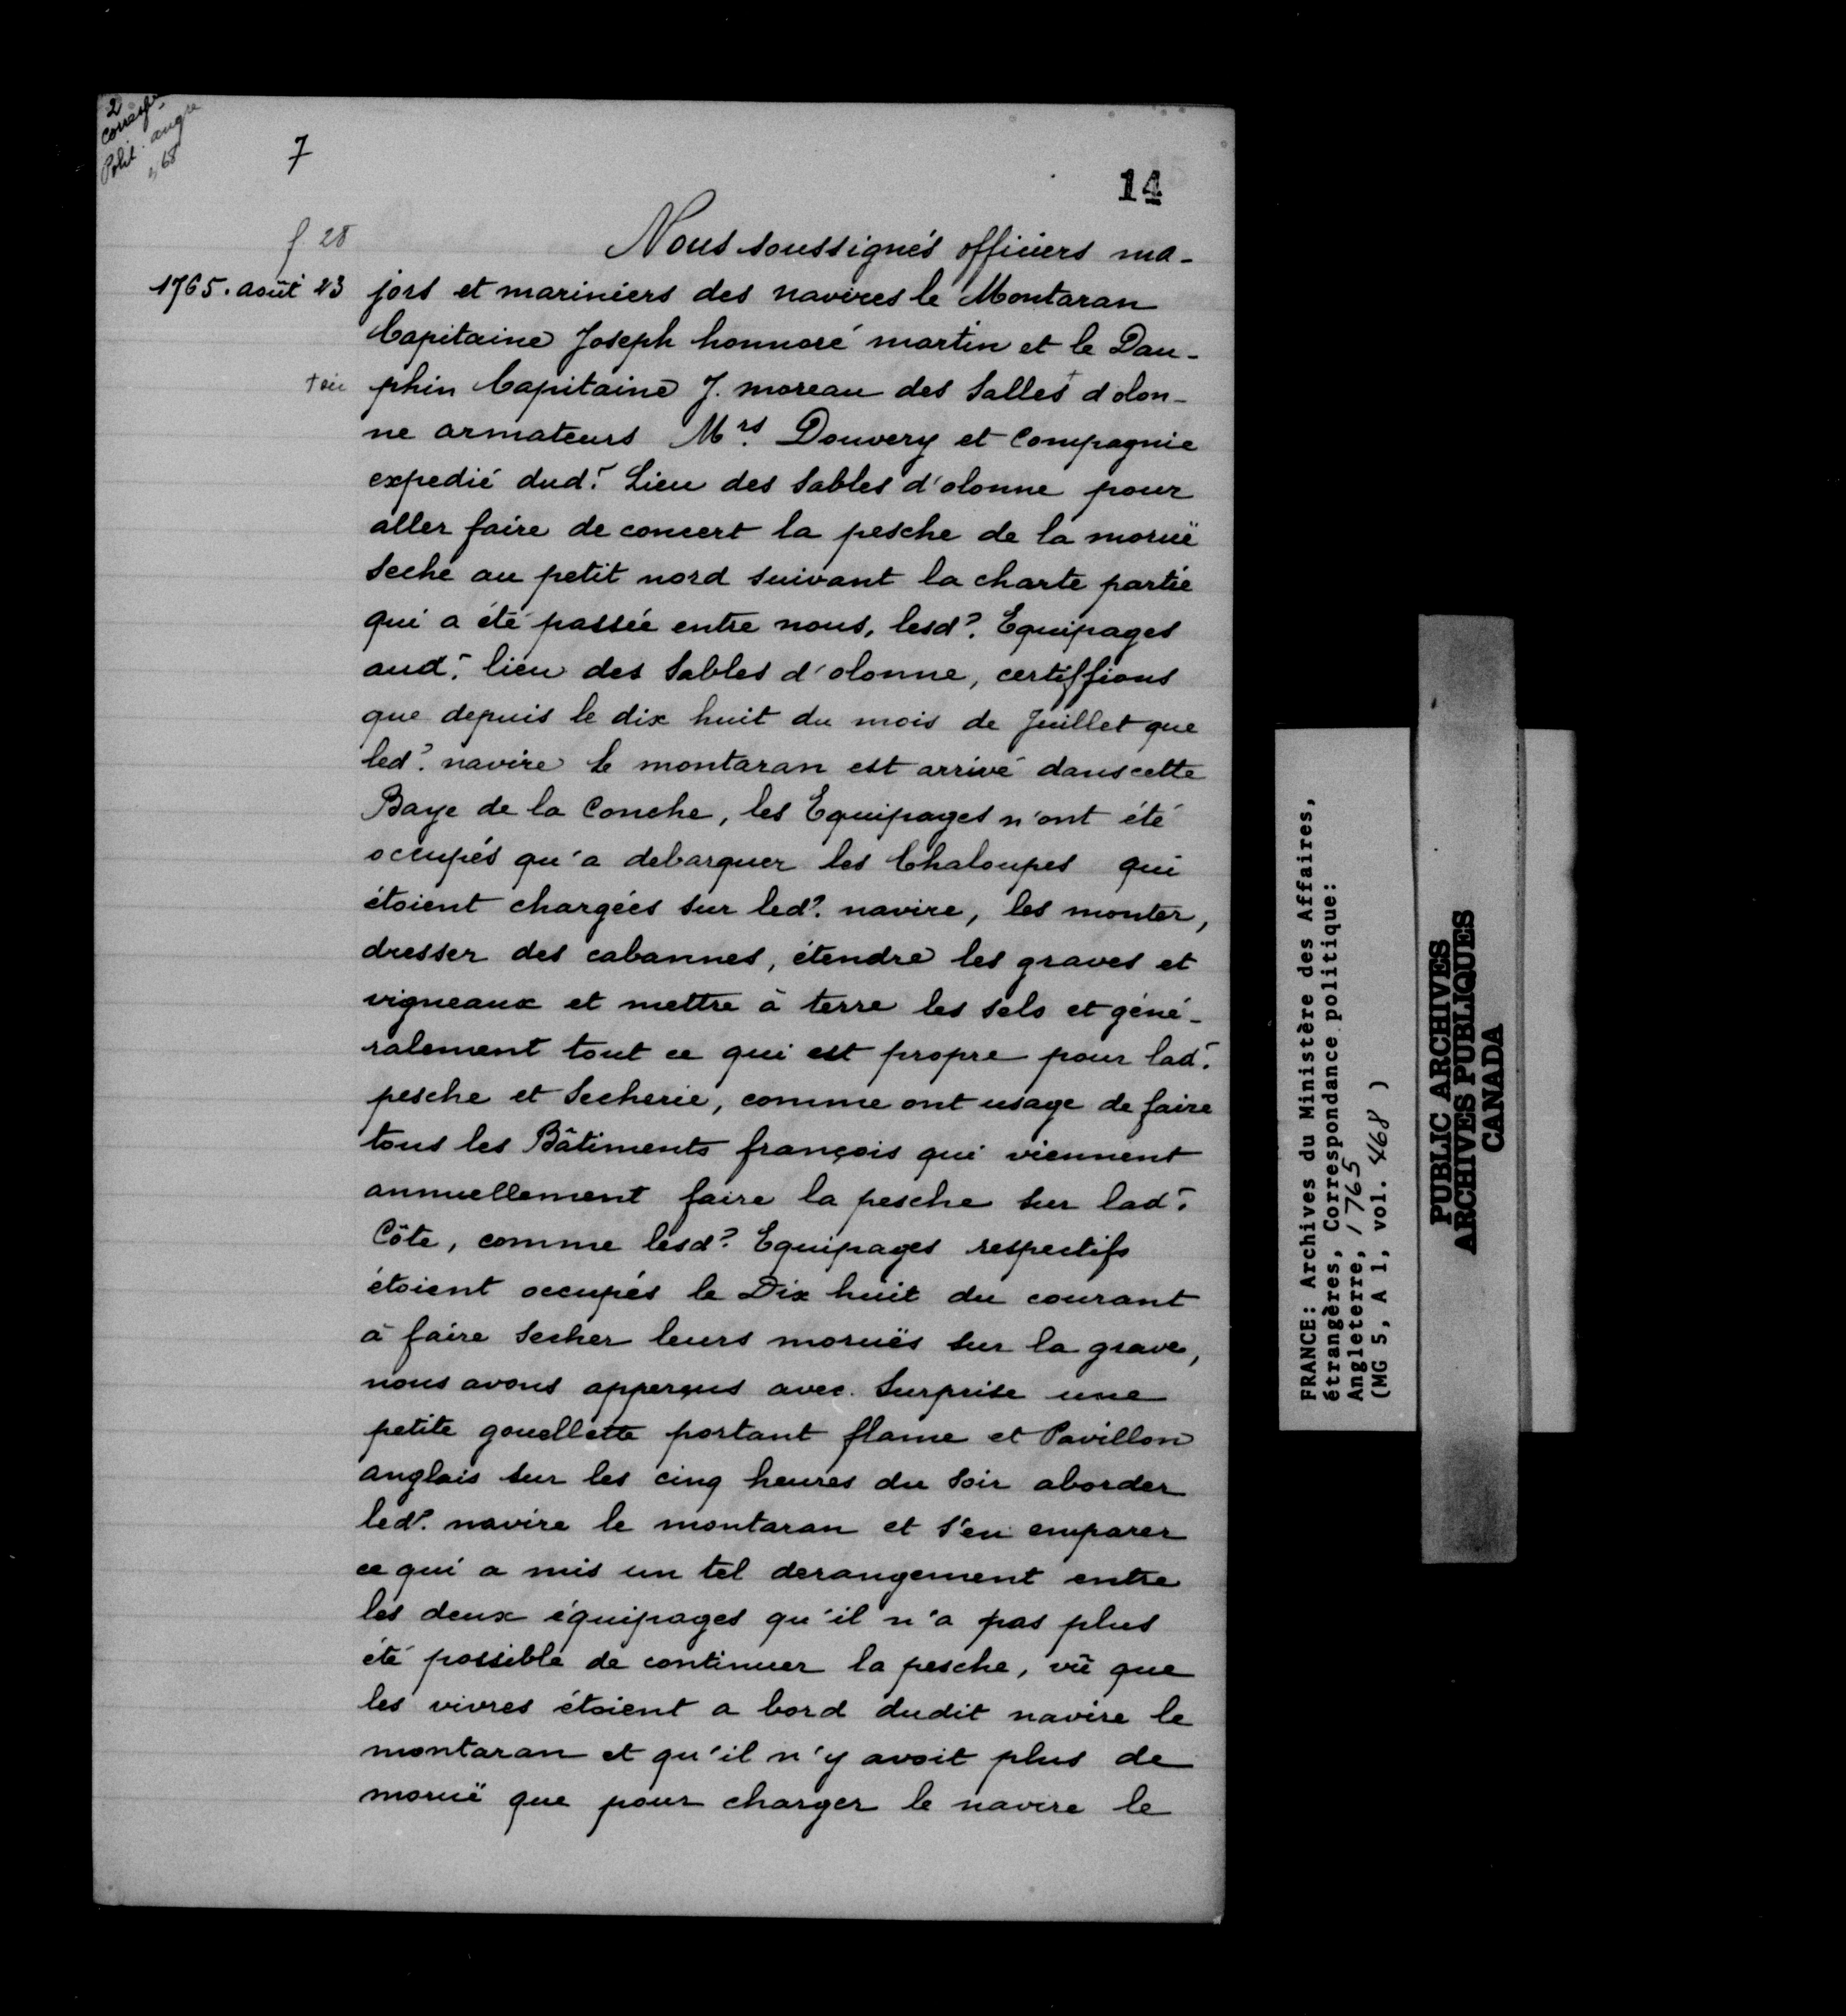 2
Corresp.
Polit. angre
468
7
14
f 28
1765. août 23
+ sic
Nous soussignés officiers ma-
jors et mariniers des navires le Montaran
Capitaine Joseph honnoré martin et le Dau-
phin Capitaine J. moreau des Salles+ d'olon-
ne armateurs Mrs. Douvery et Compagnie
expedié dudt. Lieu des Sables d'olonne pour
aller faire de concert la pesche de la moruë
seche au petit nord suivant la charte partie
qui a été passée entre nous, lesd. Equipages
aud. lieu des Sables d'olonne, certiffions
que depuis le dix huit du mois de Juillet que
led. navire le montaran est arrivé dans cette
Baye de la Conche, les Equipages n'ont été
occupés qu'a debarquer les Chaloupes qui
étoient chargées sur led. navire, les monter,
dresser des cabannes, étendre les graves et
vigneaux et mettre à terre les sels et géné-
ralement tout ce qui est propre pour lad.
pesche et Secherie, comme ont usage de faire
tous les Bâtiments françois qui viennent
annuellement faire la pesche sur lad.
Côte, comme lesd. Equipages respectifs
étoient occupés le Dix huit du courant
à faire secher leurs moruës sur la grave,
nous avons apperçus avec Surprise une
petite gouellette portant flame et Pavillon
anglais sur les cinq heures du Soir aborder
led. navire le montaran et s'en emparer
ce qui a mis un tel derangement entre
les deux équipages qu'il n'a pas plus
été possible de continuer la pesche, vû que
les vivres étoient a bord dudit navire le
montaran et qu'il n'y avoit plus de
moruë que pour charger le navire le
FRANCE: Archives du Ministère des Affaires,
étrangères, Correspondance politique:
Angleterre, 1765
(MG 5, A 1, vol. 468 )
PUBLIC ARCHIVES
ARCHIVES PUBLIQUES
CANADA